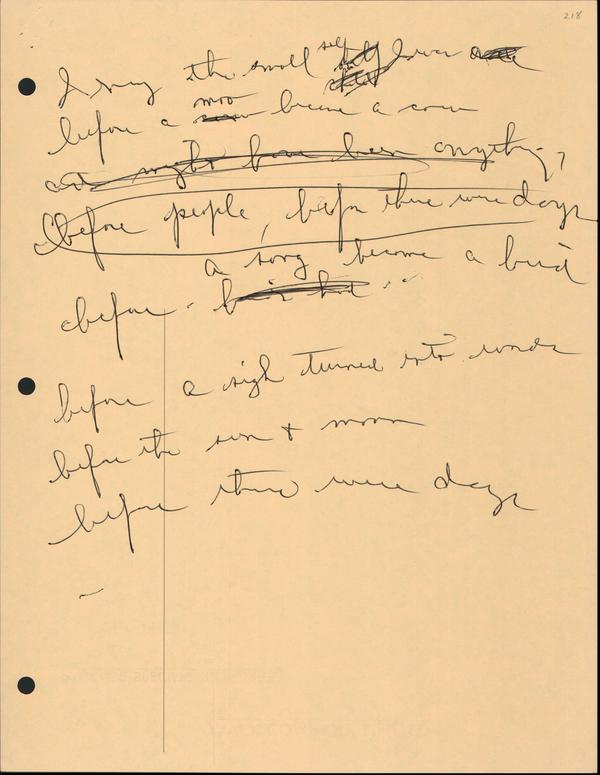 218
I sing the small self I was
before a moo became a cow
might have been anything,
before people, before there were days
a song become a bird
before
before a sigh turned into wonder
before the sun + moon
before there were days